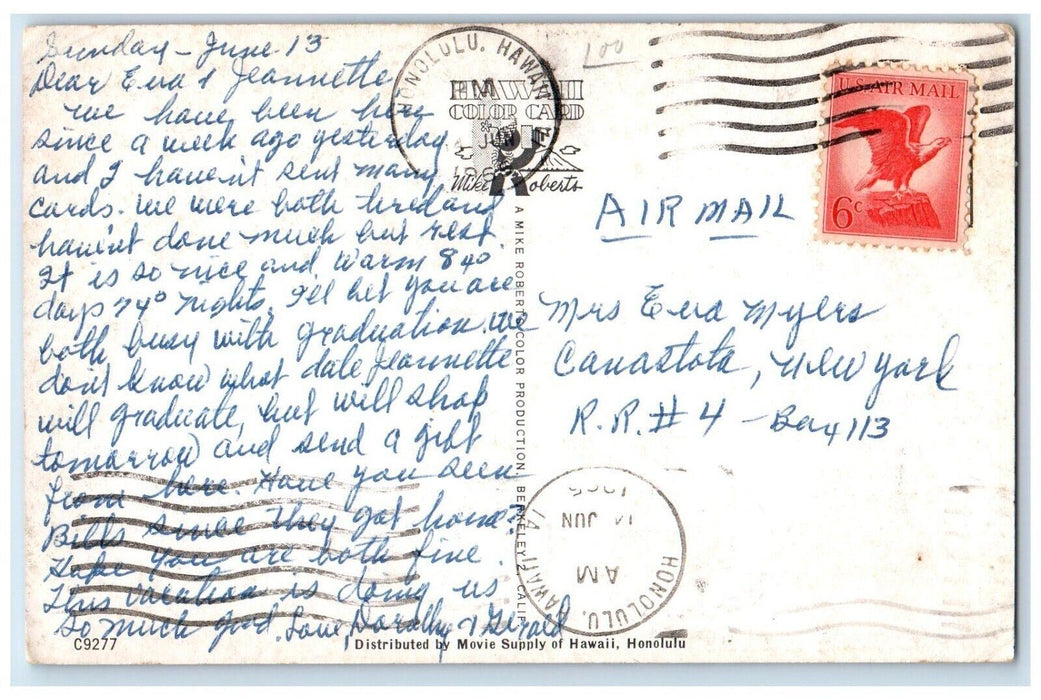 Sunday - June 13
Dear Eva & Jeannette
we have been here
since a week ago yesterday
and I haven't sent many
cards. We were both tired and
haven't done much but rest.
It is so nice and warm 84°
days 74° nights. I'll bet you are
both busy with graduation. We
don't know what date Jeannette
will graduate, but will shop
tomorrow and send a gift
from here. Have you seen
Bills since they got home?
Hope you are both fine.
This vacation is doing us
so much good. Love, Dorothy & Gerald
C9277
HONOLULU, HAWAII
PM
JUN
HAWAII
COLOR CARD
Mike Roberts
A MIKE ROBERTS COLOR PRODUCTION, BERKELEY 2, CALIF.
Distributed by Movie Supply of Hawaii, Honolulu
1.00
U.S. AIR MAIL
6c
AIR MAIL
Mrs Eva Myers
Canastota, New York
R.R. # 4 - Box 113
HONOLULU, HAWAII
AM
14 JUN
1965